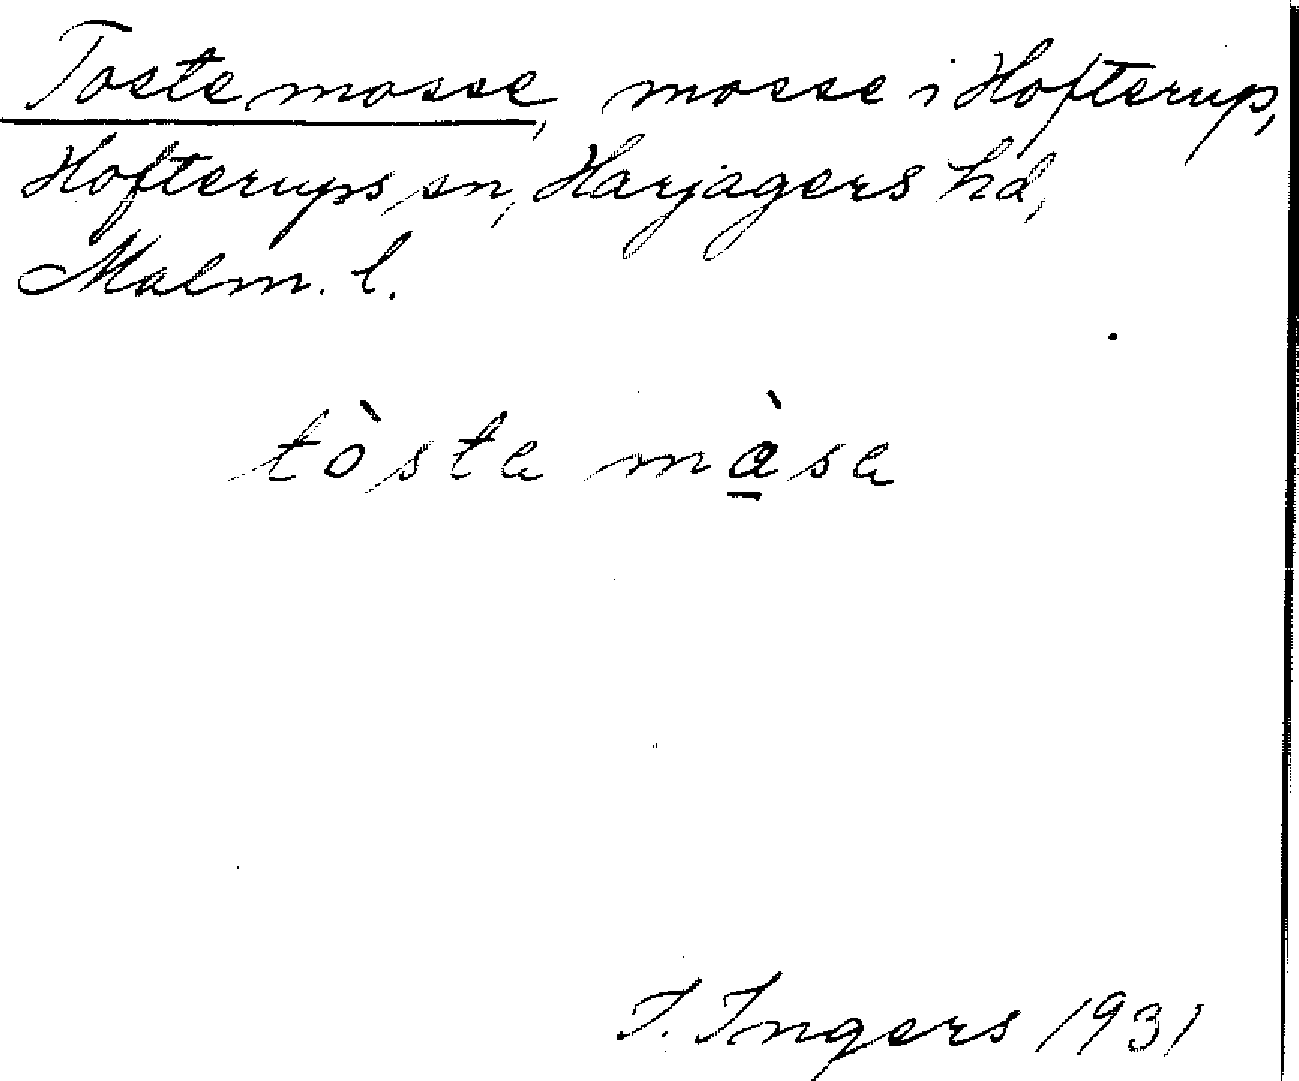 Tostemosse, mosse i Hofterup,
Hofterups sn, Harjagers hd,
Malm. l.
tòsta mà̲sa
I. Ingers 1931